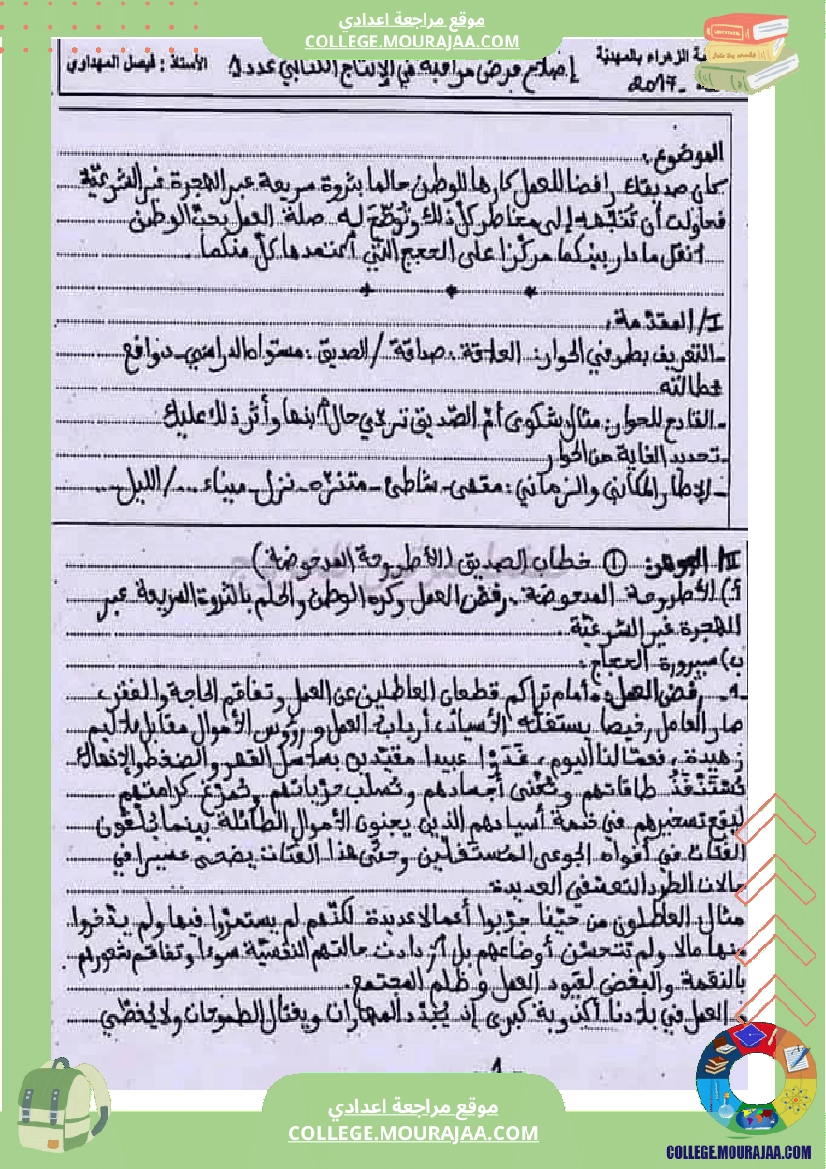 موقع مراجعة اعدادي
COLLEGE.MOURAJAA.COM
الزهراء بالمهدية
2017
إصلاح فرض مراقبة في الإنتاج الكتابي عدد 5
الأستاذ : فيصل المهداوي
الموضوع :
كان صديقك رافضا للعمل كارها للوطن حالما بثروة سريعة عبر الهجرة غير الشرعيّة
فحاولت أن تُنبّهه إلى مخاطر كلّ ذلك وتُوضّح له صلة العمل بحبّ الوطن
انقل ما دار بينكما مركّزا على الحجج التي اعتمدها كلّ منكما .
I/ المقدّمة :
- التعريف بطرفي الحوار : العلاقة : صداقة / الصديق : مستواه الدراسي - دوافع
عطالته
- القادح للحوار : مثال شكوى أمّ الصّديق تردّي حال ابنها وأثر ذلك عليك
- تحديد الغاية من الحوار
- الإطار المكاني والزماني : مقهى - شاطئ - متنزه - نزل - ميناء ... / الليل ...
II/ الجوهر : ① خطاب الصديق (الأطروحة المدحوضة)
أ) الأطروحة المدحوضة : رفض العمل وكره الوطن والحلم بالثروة السريعة عبر
الهجرة غير الشرعيّة
ب) سيرورة الحجاج :
رفض العمل : أمام تراكم قطعان العاطلين عن العمل وتفاقم الحاجة والفقر ،
صار العامل رخيصا يستغلّه الأسياد أرباب العمل ورؤوس الأموال مقابل ملاليم
زهيدة ، فعمّالنا اليوم ، غَدَوْا عبيدا مقيّدين بسلاسل القهر والضغط والإنهاك
تُسْتَنْفَذُ طاقاتهم وتُفْنى أجسادهم وتُسلب حرّياتهم وتُمرّغ كرامتهم
ليقع تسخيرهم في خدمة أسيادهم الذين يجنون الأموال الطائلة بينما يُلْقون
الفُتات في أفواه الجوعى المُستغَلّين وحتّى هذا الفتات يضحى عسيرا في
حالات الطرد التعسّفي العديدة
مثال : العاطلون من حيّنا جرّبوا أعمالا عديدة لكنّهم لم يستمرّوا فيها ولم يدّخروا
منها مالا ولم تتحسّن أوضاعهم بل ازدادت حالتهم النفسيّة سوءا وتفاقم شعورهم
بالنقمة والبغض لقيود العمل وظلم المجتمع .
العمل في بلادنا أكذوبة كبرى إذ يُبدّد المهارات ويغتال الطموحات ولا يُفضي
- 1 -
موقع مراجعة اعدادي
COLLEGE.MOURAJAA.COM
COLLEGE.MOURAJAA.COM